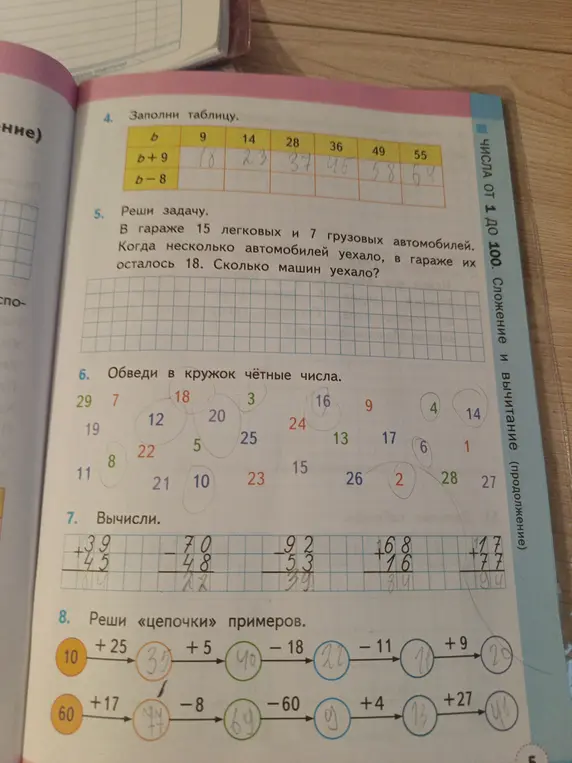 ние)
спо-
4. Заполни таблицу.
b 9 14 28 36 49 55
b + 9 18 23 37 45 58 64
b − 8
5. Реши задачу.
В гараже 15 легковых и 7 грузовых автомобилей.
Когда несколько автомобилей уехало, в гараже их
осталось 18. Сколько машин уехало?
6. Обведи в кружок чётные числа.
29 7 18 3 16 9 4 14
19 12 20 24
22 5 25 13 17 6 1
11 8 21 10 23 15 26 2 28 27
7. Вычисли.
+39 −70 −92 +68 +17
45 48 53 16 77
22 39 94
8. Реши «цепочки» примеров.
10 +25 35 +5 40 −18 22 −11 11 +9 20
60 +17 77 −8 69 −60 9 +4 13 +27
ЧИСЛА ОТ 1 ДО 100. Сложение и вычитание (продолжение)
5